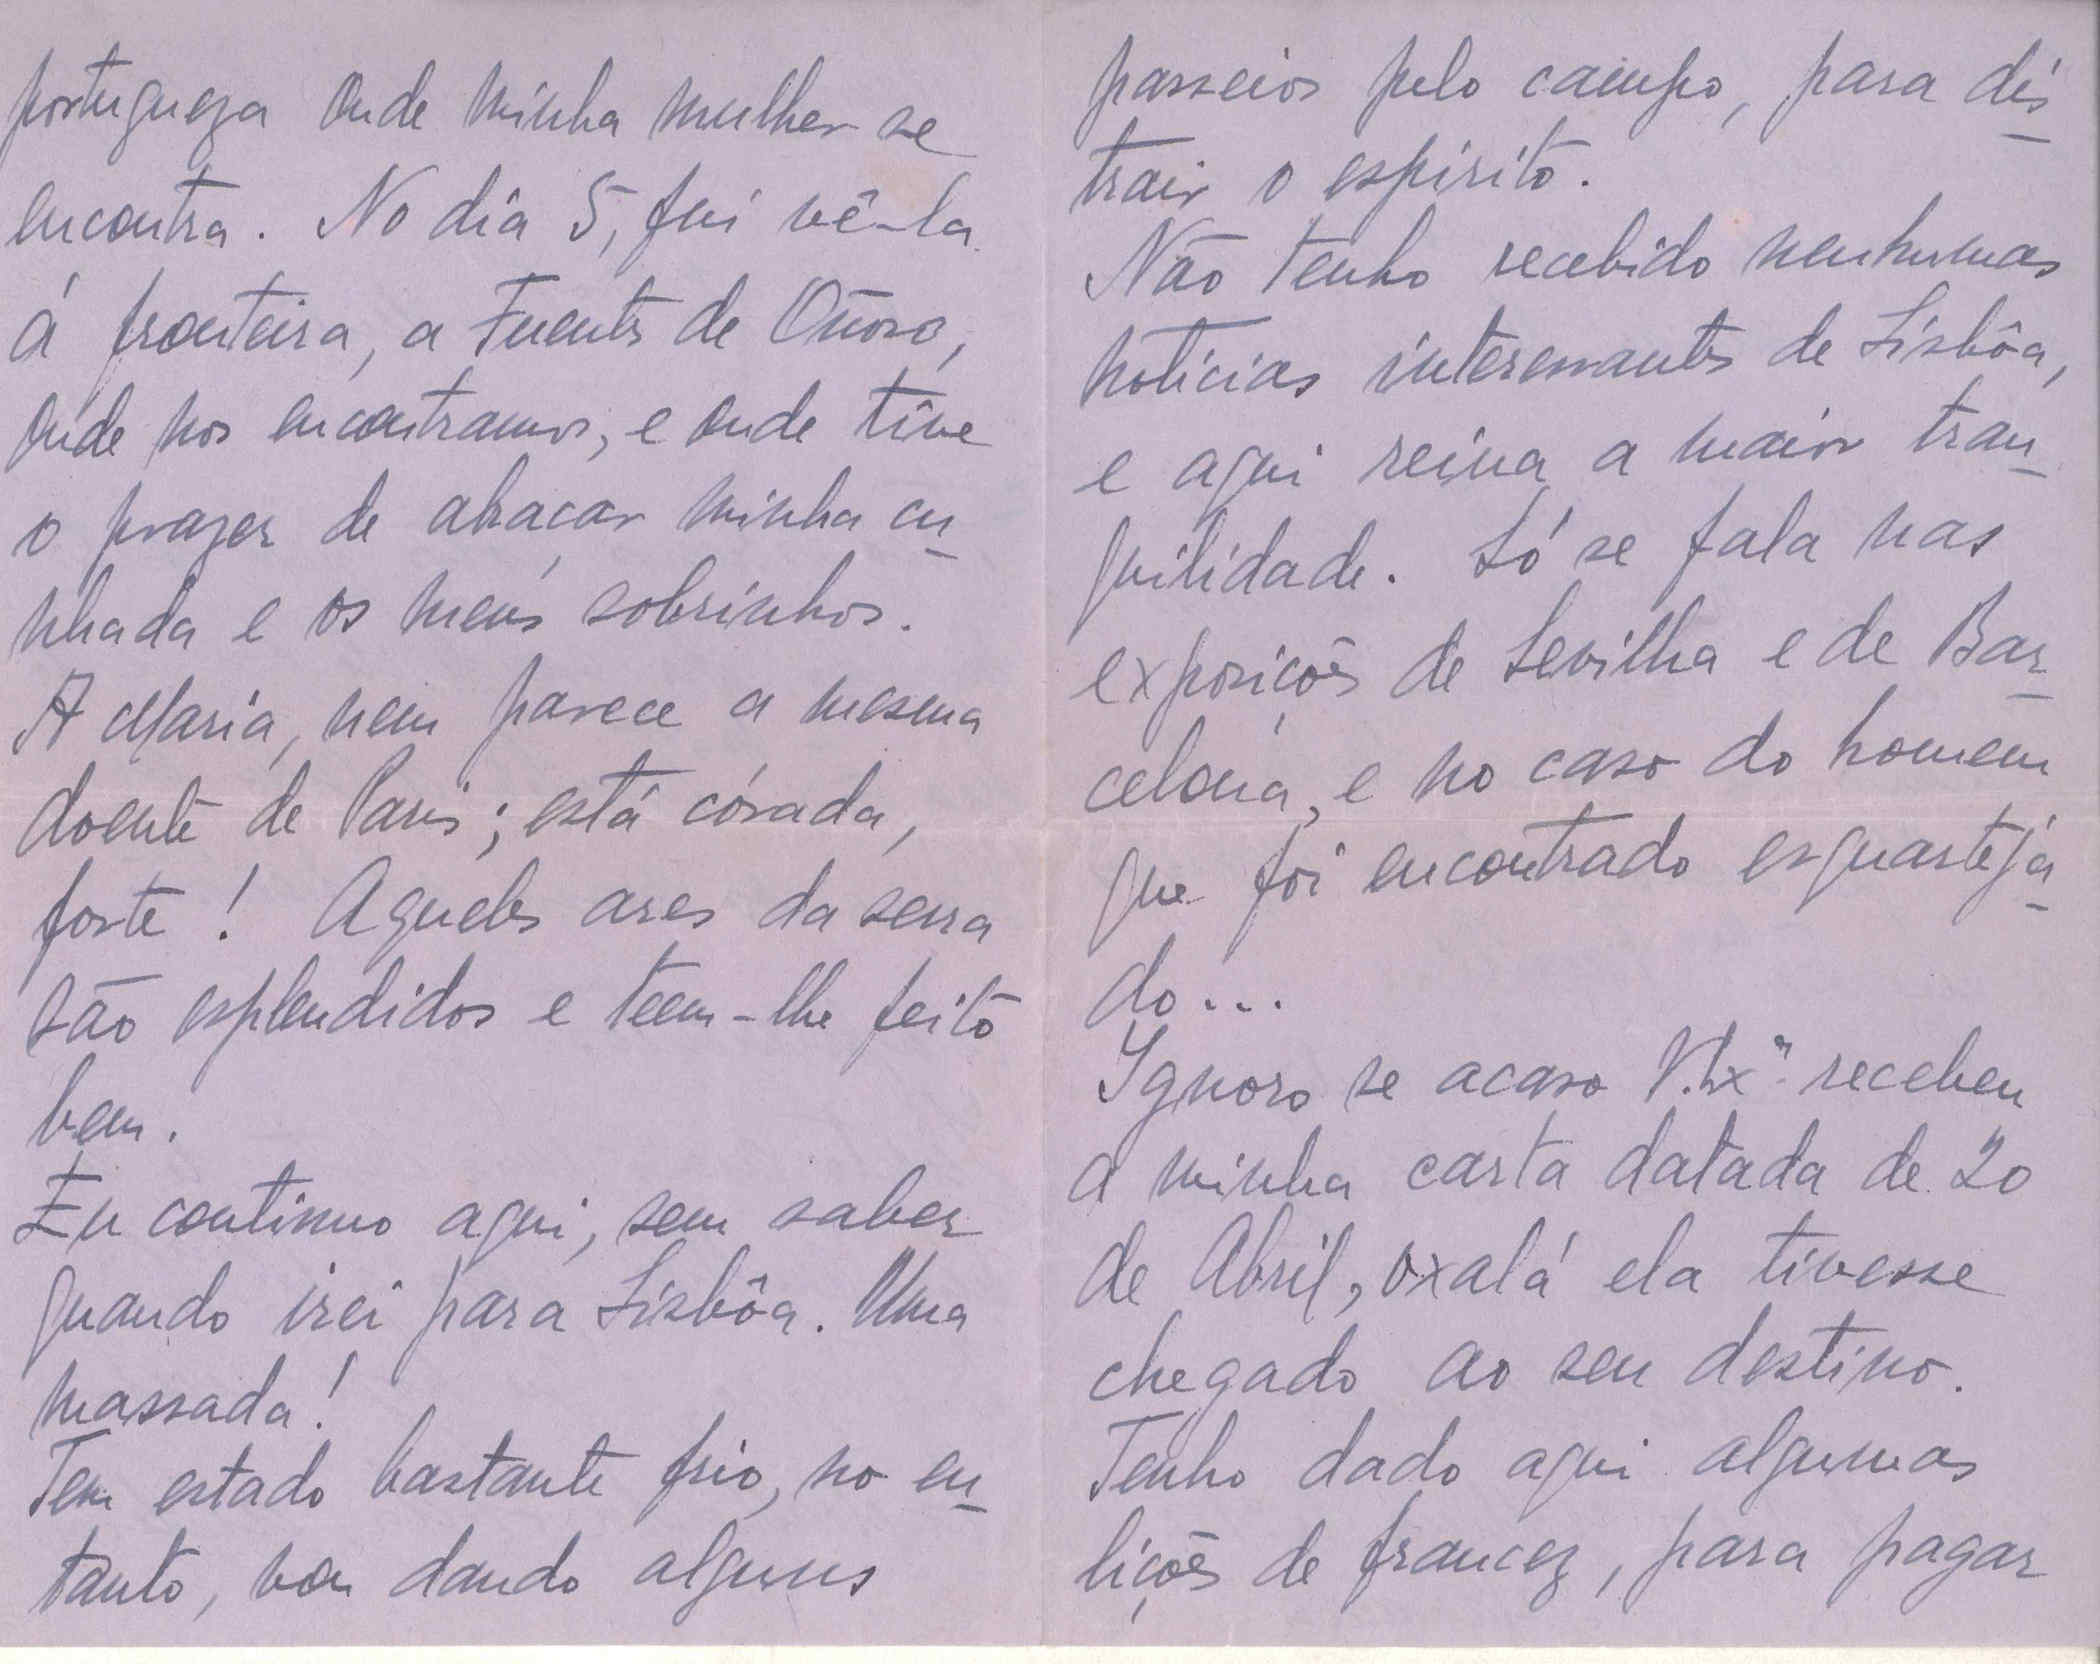 portugueza onde minha mulher se
encontra. No dia 5, fui vê-la
á fronteira, a Fuentes de Oñoro,
onde nos encontramos, e onde tive
o prazer de abraçar minha cu-
nhada e os meus sobrinhos.
A Maria, nem parece a mesma
doente de Paris; está córada,
forte! Aqueles ares da serra
são esplendidos e teem-lhe feito
bem.
Eu continuo aqui, sem saber
quando irei para Lisbôa. Uma
massada!
Tem estado bastante frio, no en-
tanto, vou dando alguns
passeios pelo campo, para dis-
trair o espirito.
Não tenho recebido nenhumas
noticias interessantes de Lisbôa,
e aqui reina a maior tran-
quilidade. Só se fala nas
exposições de Sevilha e de Bar-
celona, e no caso do homem
que foi encontrado esquarteja-
do...
Ignoro se acaso V. Ex.ª recebeu
a minha carta datada de 20
de Abril, oxalá ela tivesse
chegado ao seu destino.
Tenho dado aqui algumas
lições de francez, para pagar